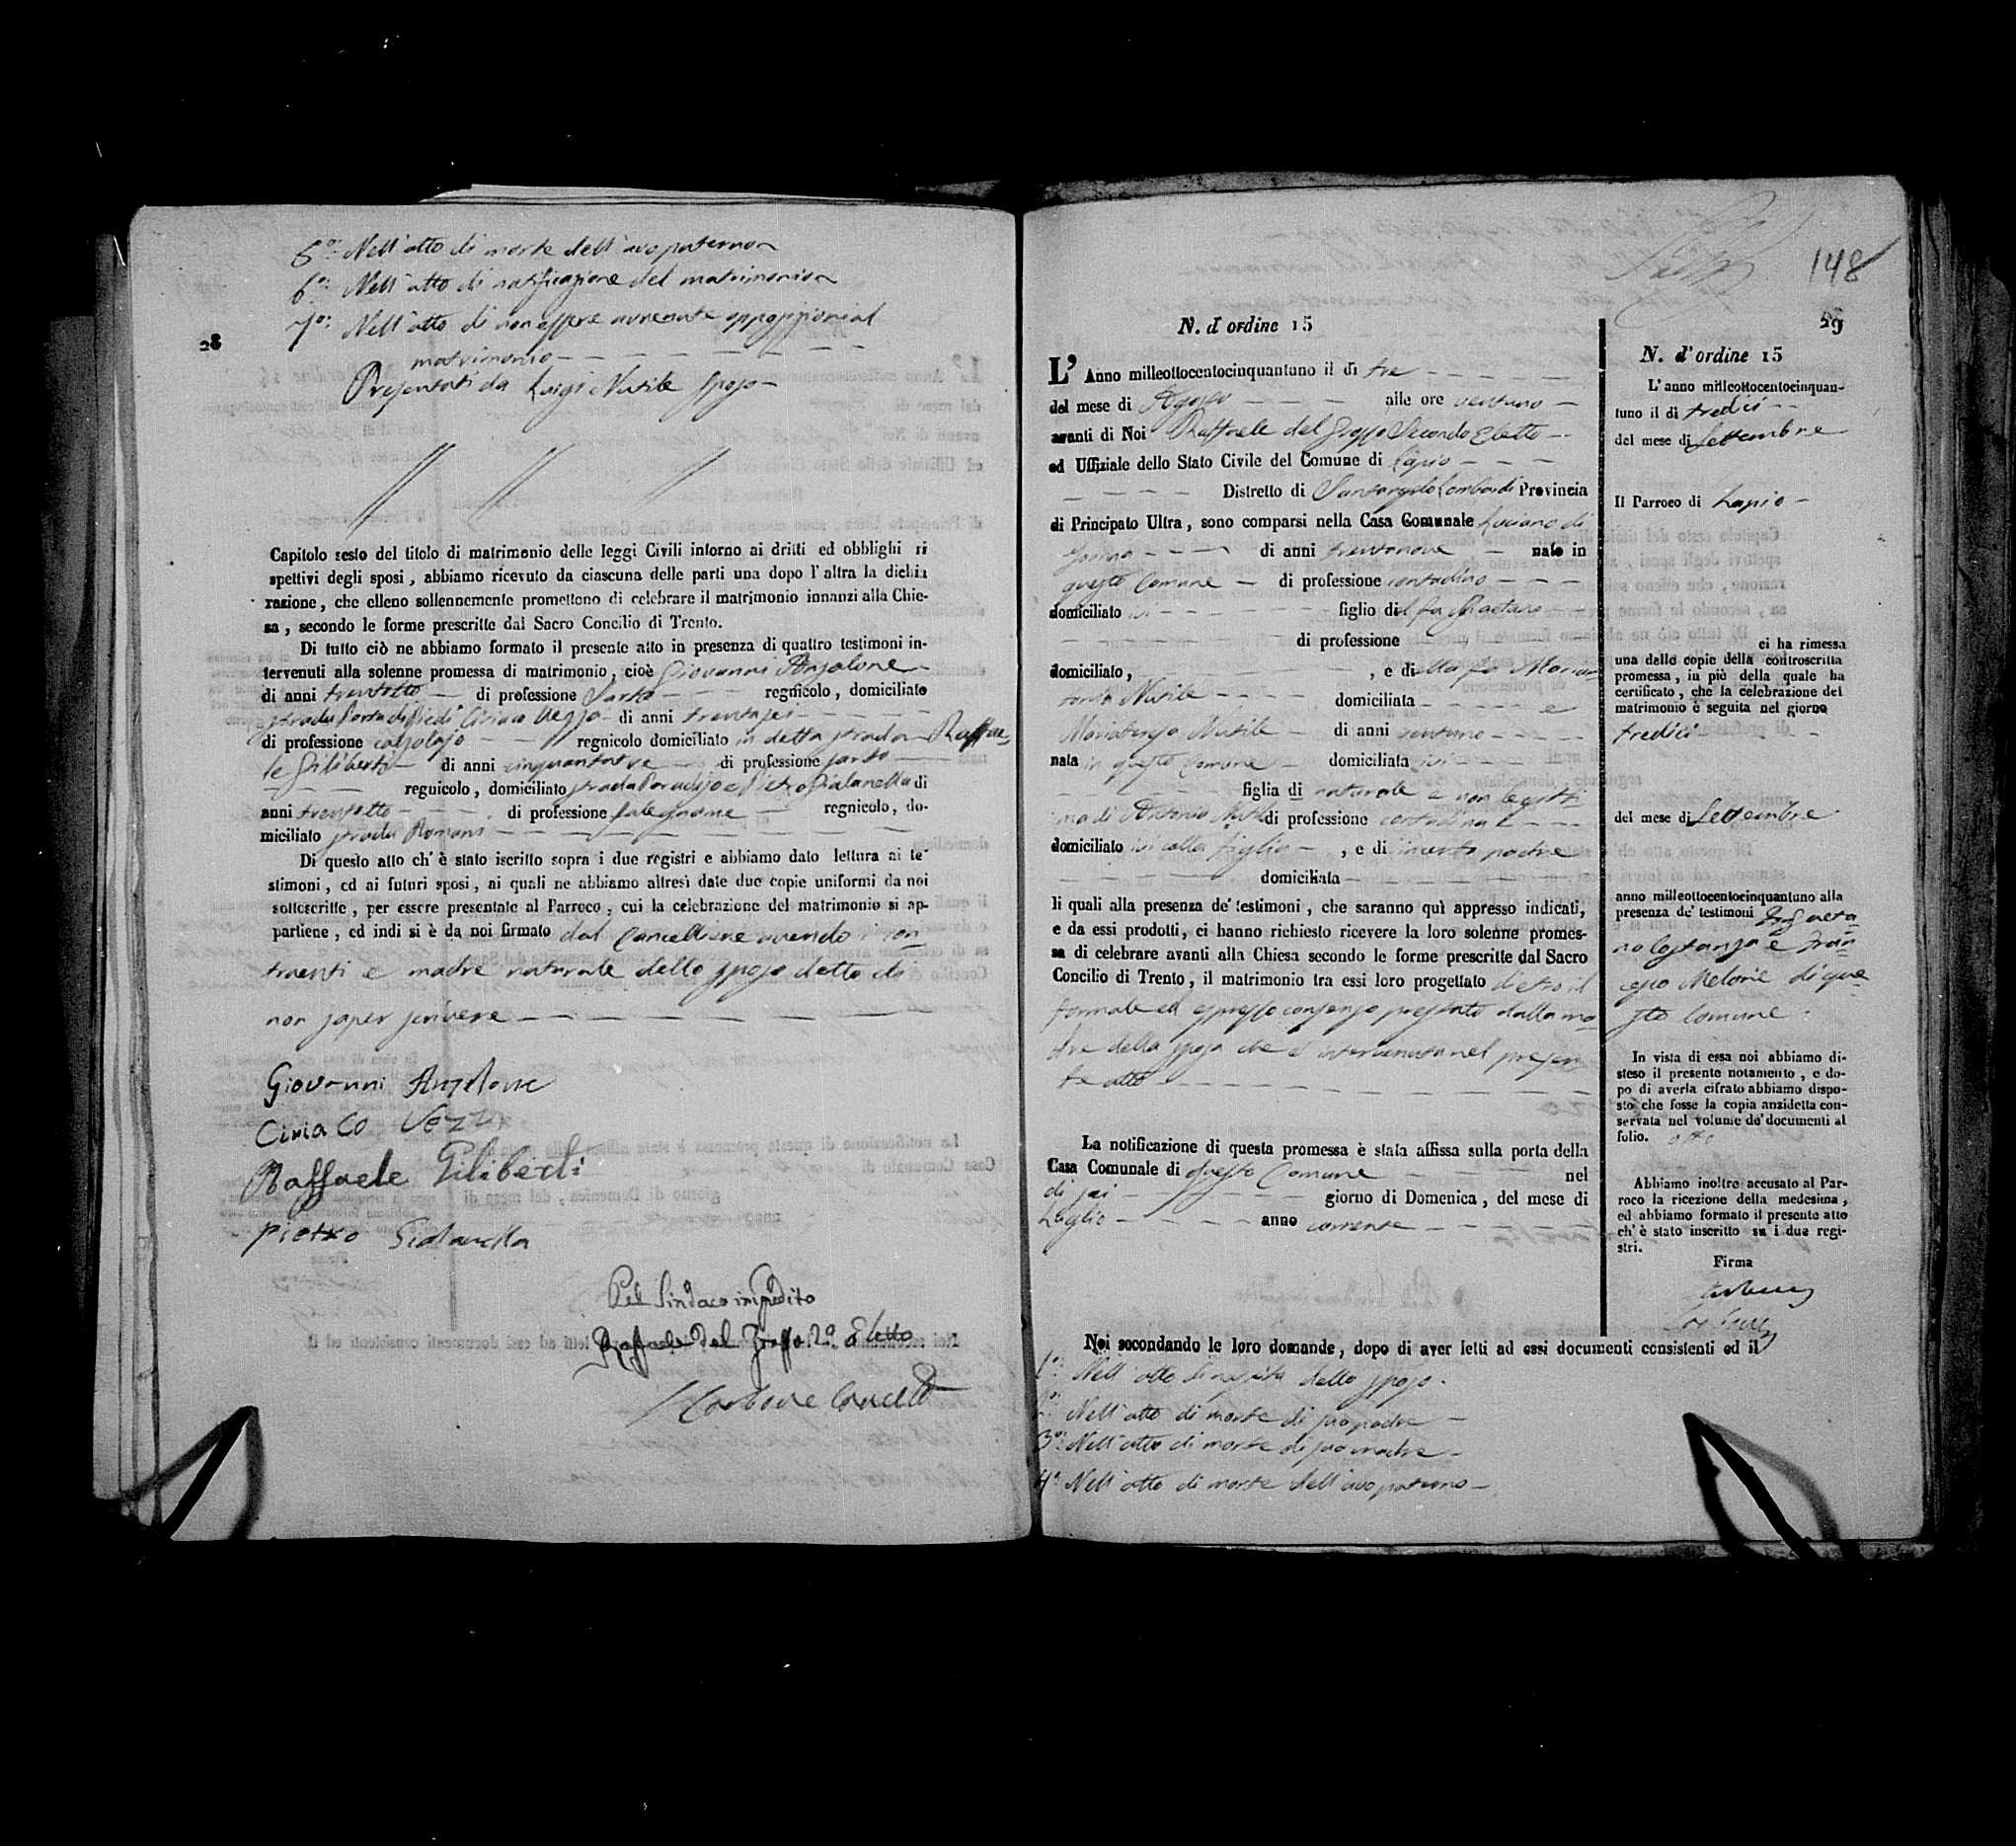 5º: Nell'atto di morte dell'avo paterno
6º: Nell'atto di notificazione del matrimonio
7º: Nell'atto di non essere avvenute opposizioni al
28
matrimonio
Presentati da Luigi Nutile sposo
Capitolo sesto del titolo di matrimonio delle leggi Civili intorno ai dritti ed obblighi ri
spettivi degli sposi, abbiamo ricevuto da ciascuna delle parti una dopo l'altra la dichia
razione, che elleno sollennemente promettono di celebrare il matrimonio innanzi alla Chie-
sa, secondo le forme prescritte dal Sacro Concilio di Trento.
Di tutto ciò ne abbiamo formato il presente atto in presenza di quattro testimoni in-
tervenuti alla solenne promessa di matrimonio, cioè Giovanni Anzalone
di anni trentotto di professione Sarto regnicolo, domiciliato
strada Porta di Piedi Ciriaco Vezzo di anni trentasei
di professione calzolajo regnicolo domiciliato in detta strada Raffae-
le Giliberti di anni cinquantatre di professione sarto
regnicolo, domiciliato strada Paradiso e Pietro Sialanella di
anni trentotto di professione falegname regnicolo, do-
miciliato strada Romani
Di questo atto ch'è stato iscritto sopra i due registri e abbiamo dato lettura ai te-
stimoni, ed ai futuri sposi, ai quali ne abbiamo altresì date due copie uniformi da noi
sottoscritte, per essere presentate al Parroco, cui la celebrazione del matrimonio si ap-
partiene, ed indi si è da noi firmato dal Cancelliere avendo i con
traenti e madre naturale dello sposo detto di
non saper scrivere
Giovanni Anzalone
Ciriaco Vezzo
Raffaele Giliberti
Pietro Sialanella
Pel Sindaco impedito
Raffaele Del Grosso 2º Eletto
Carbone
148
29
N. d'ordine 15
L' Anno milleottocentocinquantuno il dì tre
del mese di Agosto alle ore ventuno
avanti di Noi Raffaele del Grosso Secondo Eletto
ed Uffiziale dello Stato Civile del Comune di Lapio
Distretto di Santangelo Lombardi Provincia
di Principato Ultra, sono comparsi nella Casa Comunale Luciano di
di anni trentanove nato in
questo Comune di professione contadino
domiciliato ivi figlio del fu Gaetano
di professione
domiciliato, , e della fu Marian
Nutile domiciliata e
Mariateresa Nutile di anni ventuno
nata in questo Comune domiciliata ivi
figlia di naturale e non legitti
ma di Antonia Nutile di professione contadina
domiciliato ivi colla figlia , e di incerto padre
domiciliata
li quali alla presenza de' testimoni, che saranno quì appresso indicati,
e da essi prodotti, ci hanno richiesto ricevere la loro solenne promes-
sa di celebrare avanti alla Chiesa secondo le forme prescritte dal Sacro
Concilio di Trento, il matrimonio tra essi loro progettato dietro il
formale ed espresso consenso prestato dalla ma-
dre della sposa che è intervenuta nel presen
te atto
La notificazione di questa promessa è stata affissa sulla porta della
Casa Comunale di questo Comune nel
di sei giorno di Domenica, del mese di
Luglio anno corrente
Noi secondando le loro domande, dopo di aver letti ad essi documenti consistenti ed il
1º: Nell'atto di nascita dello sposo
2º: Nell'atto di morte di suo padre
3º: Nell'atto di morte di sua madre
4º: Nell'atto di morte dell'avo paterno
N. d'ordine 15
L'anno milleottocentocinquan-
tuno il di tredici
del mese di Settembre
Il Parroco di Lapio
ci ha rimessa
una delle copie della controscritta
promessa, in piè della quale ha
certificato, che la celebrazione del
matrimonio è seguita nel giorno
tredici
del mese di Settembre
anno milleottocentocinquantuno alla
presenza de' testimoni Gaeta
no Costanza e Fran
Melone di que
sto Comune.
In vista di essa noi abbiamo di-
steso il presente notamento, e do-
po di averla cifrato abbiamo dispo-
sto che fosse la copia anzidetta con-
servata nel volume de' documenti al
folio. otto
Abbiamo inoltre accusato al Par-
roco la ricezione della medesima,
ed abbiamo formato il presente atto
ch'è stato inscritto su i due regi-
stri.
Firma